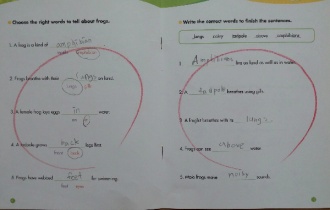 Choose the right words to tell about frogs.
1. A frog is a kind of amphibian
2. Frogs breathe with their lungs on land.
3. A female frog lays eggs in water.
4. A tadpole grows back legs first.
5. Frogs have webbed feet for swimming.
Write the correct words to finish the sentences.
lungs noisy tadpole above amphibians
1. Amphibians live on land as well as in water.
2. A tadpole breathes using gills.
3. A froglet breathes with its lungs.
4. Frogs can see above water.
5. Male frogs make noisy sounds.